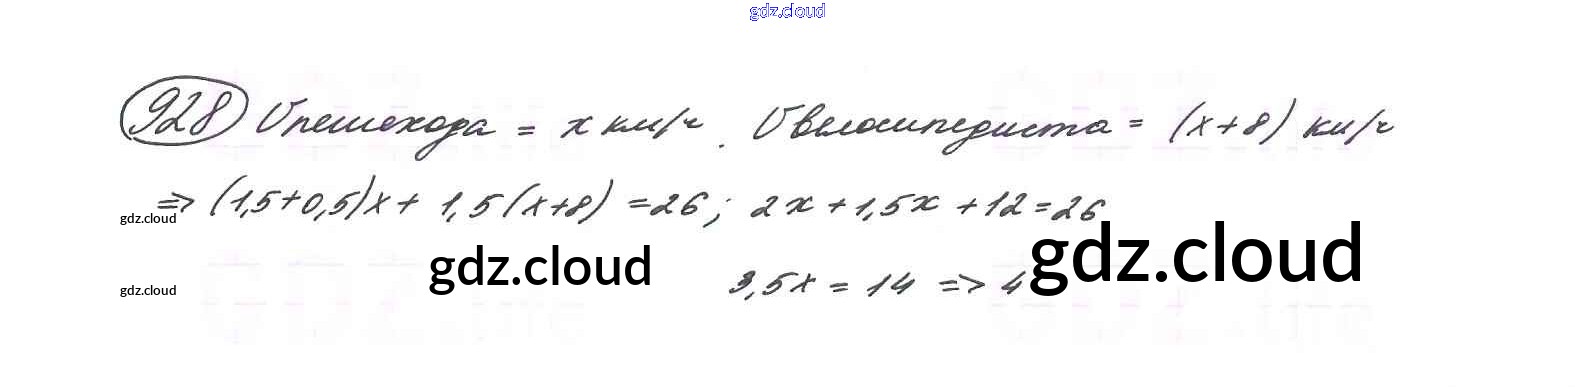 gdz.cloud
928 Vпешехода = x км/ч. Vвелосипедиста = (x+8) км/ч
=> (1,5+0,5)x + 1,5(x+8) = 26; 2x + 1,5x + 12 = 26
gdz.cloud
gdz.cloud gdz.cloud
gdz.cloud 3,5x = 14 => 4